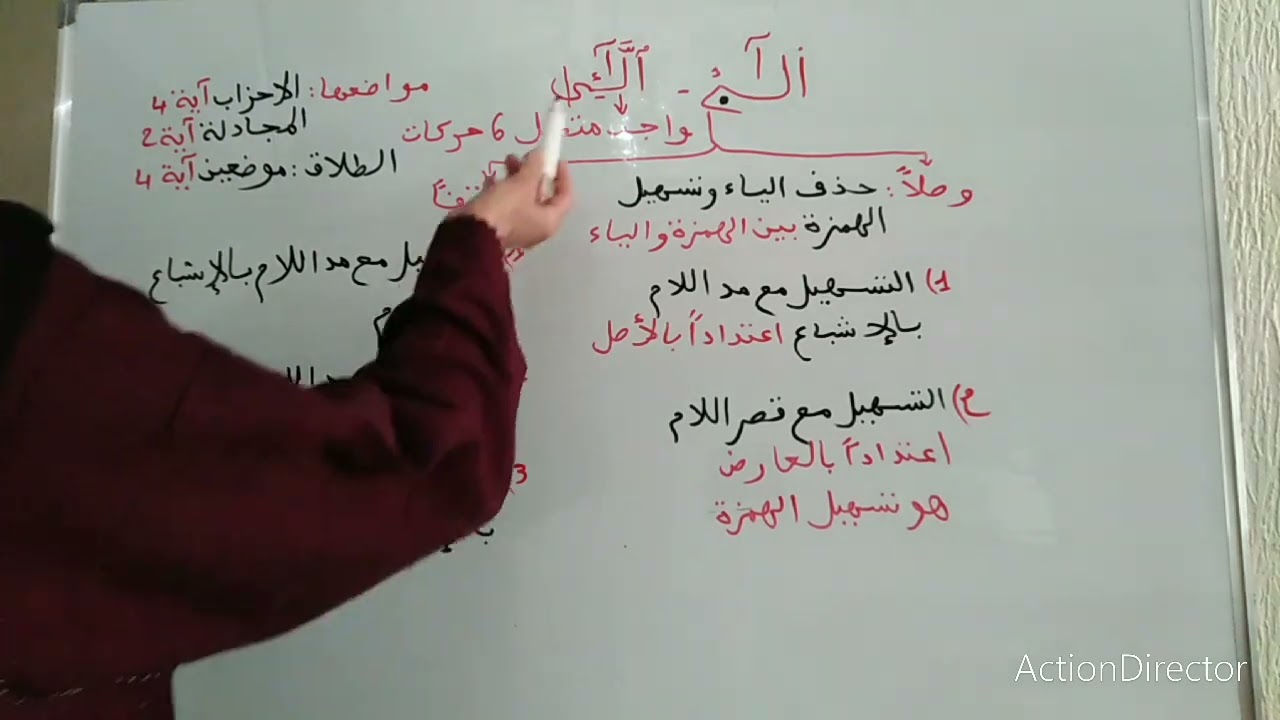 الـٓـۑ - ٱلَّـٰٓـِٔي
واجب متصل 6 حركات
مواضعها: الاحزاب آية 4
المجادلة آية 2
الطلاق: موضعين آية 4
وصلاً: حذف الياء وتسهيل
الهمزة بين الهمزة والياء
1) التسهيل مع مد اللام
بالإشباع اعتداداً بالأصل
2) التسهيل مع قصر اللام
اعتداداً بالعارض
هو تسهيل الهمزة
مع مد اللام بالإشباع
3
ActionDirector